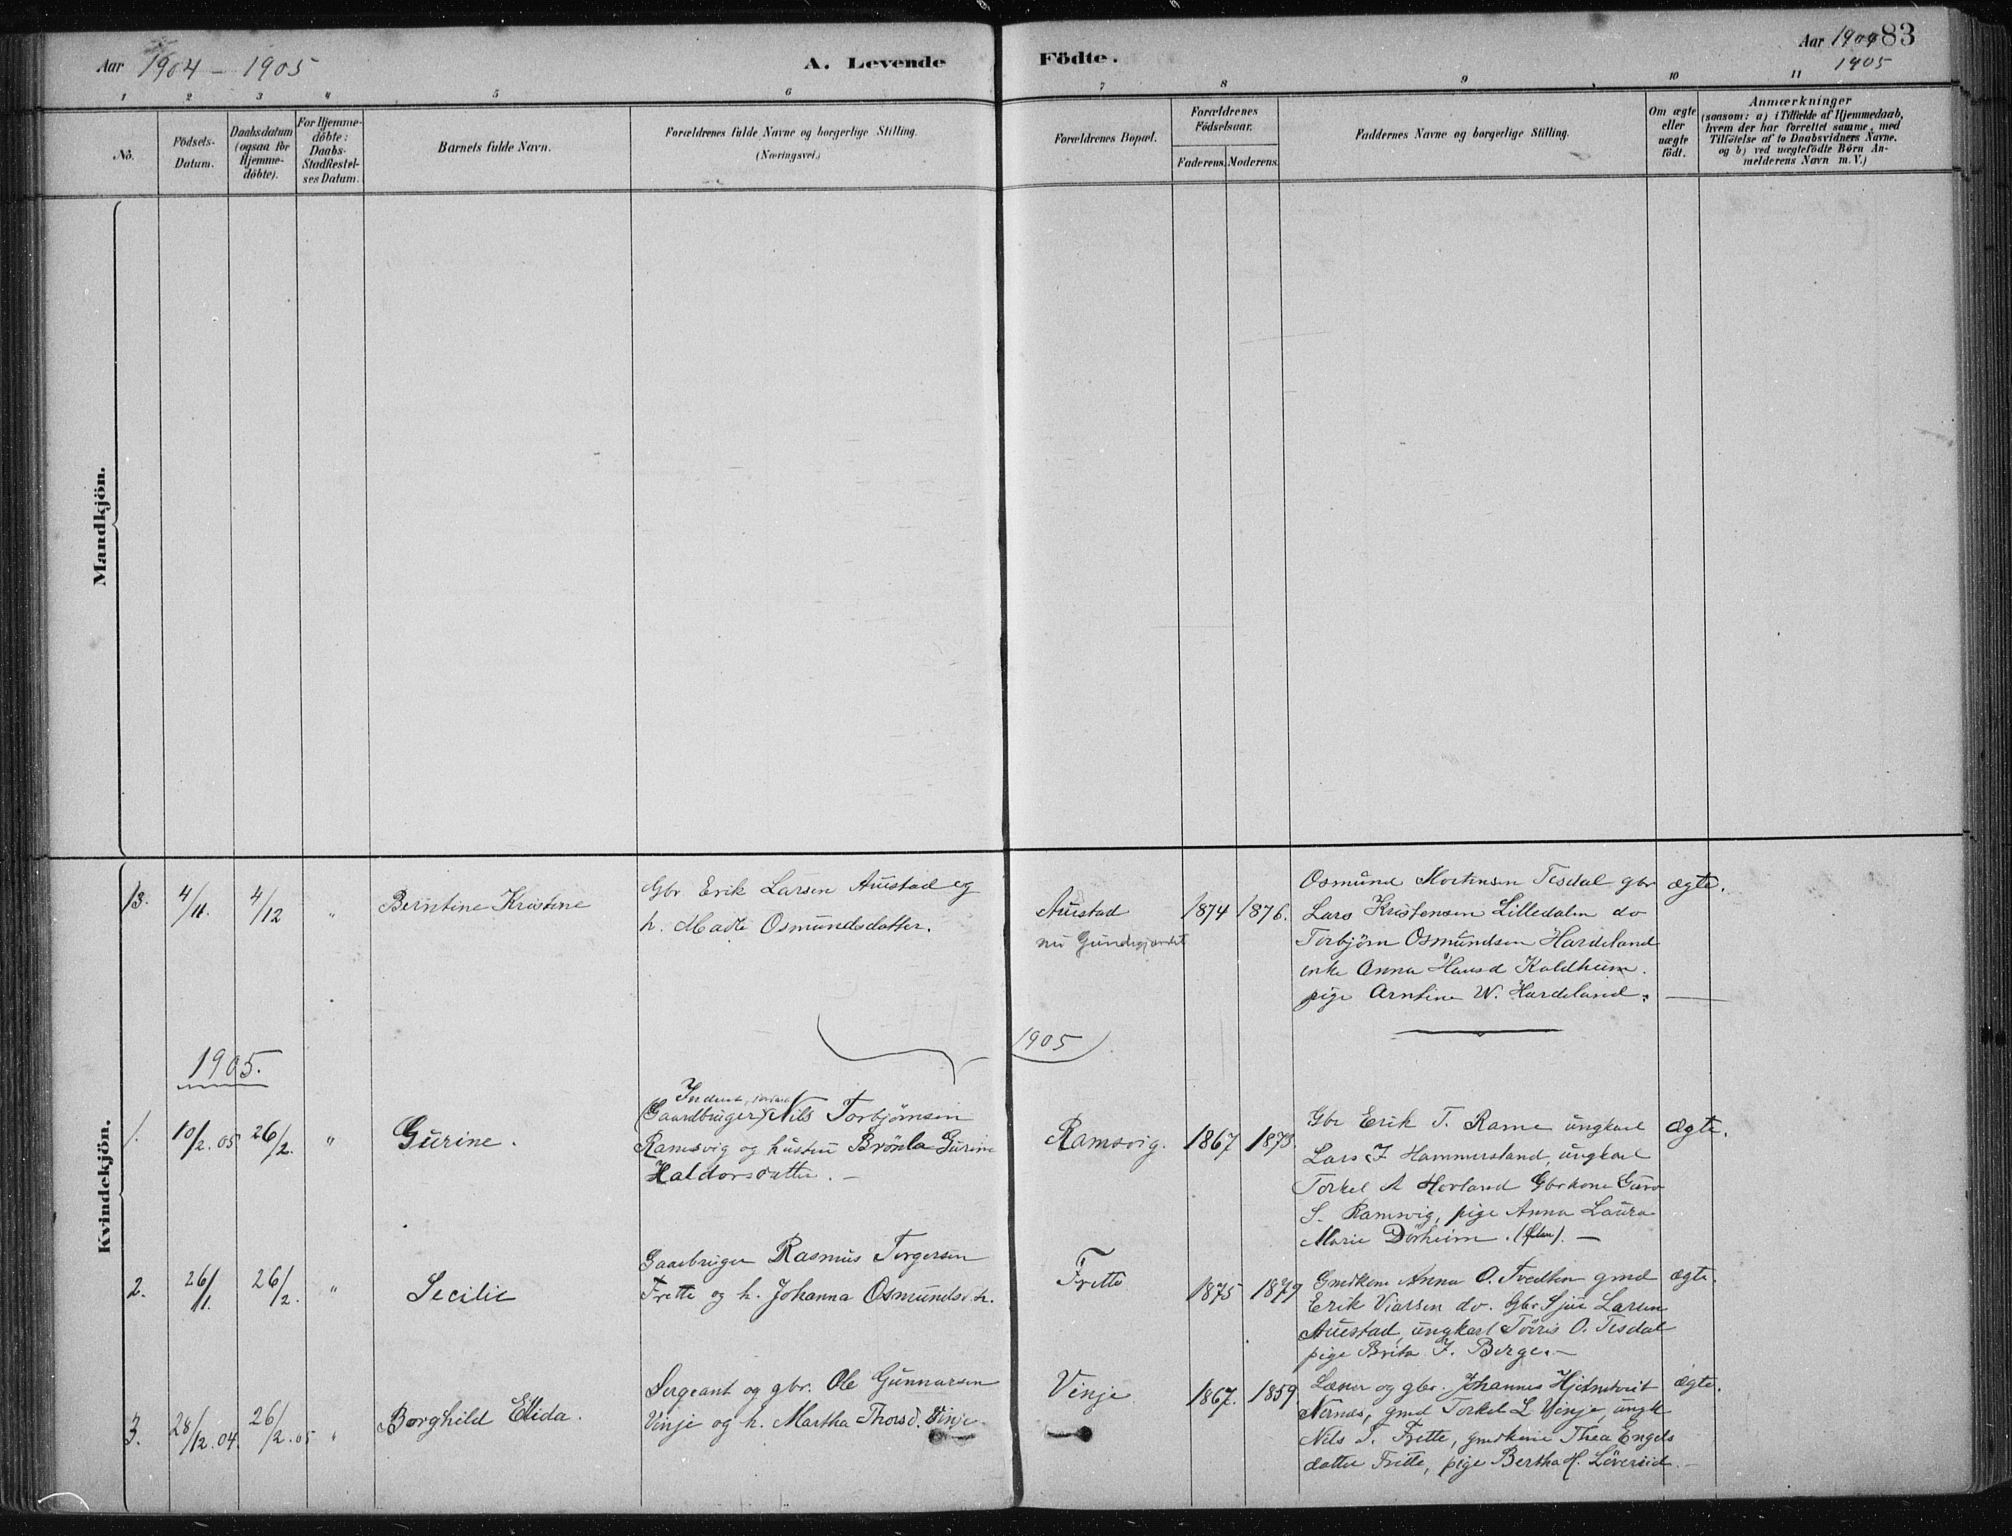 Aar 1904 - 1905
A. Levende Födte.
Aar 1904 83
1905
1 2 3 4 5 6 7 8 9 10 11
No.
Födsels-
Datum.
Daabsdatum
(ogsaa for
Hjemme-
döbte).
For Hjemme-
döbte:
Daabs-
Stadfestel-
ses Datum.
Barnets fulde Navn.
Forældrenes fulde Navne og borgerlige Stilling.
(Næringsvei.)
Forældrenes Bopæl.
Forældrenes
Födselsaar.
Faderens. Moderens.
Faddernes Navne og borgerlige Stilling.
Om ægte
eller
uægte
födt.
Anmærkninger
(saasom: a) i Tilfælde af Hjemmedaab,
hvem der har forrettet samme, med
Tilföielse af to Daabsvidners Navne,
og b) ved uægtefödte Börn An-
melderens Navn m. V.)
Mandkjön.
Kvindekjön.
13. 4/11. 4/12 " Berntine Kristine
Gbr Erik Larsen Austad og
h. Madli Osmundsdatter.
Austad
nu
1874 1876.
Osmund Mortensen Tesdal gbr
Lars Kristensen Lilledalen do
Torbjörn Osmundsen Hardeland
enke Anna Hansd Koldheim.
pige Arntine W. Hardeland.
ægte.
1905.
1905
1. 10/2.05 26/2. " Gurine.
(Gaardbruger) Nils Torbjörnsen
Ramsvig og hustru Brönla Gurine
Haldorsdatter. -
Ramsvig. 1867 1873.
Gbr Erik T. Rame ungkarl
Lars J Hammersland, ungkarl
Torkel A Hovland Gbrkone Guro
S. Ramsvig, pige Anna Laura
Marie Dörheim. -
Ægte.
2. 26/11. 26/2. " Secilie
Gaarbruger Rasmus Torgersen
Frette og h. Johanna Osmundsd.
Frette 1875 1879
Gmdkone Anna O. Tvedten gmd
Erik Viarsen do. Gbr Sjur Larsen
Austad, ungkarl Töris O. Tesdal
pige Brita J. Berge. -
ægte.
3. 28/12.04. 26/2.05 " Borghild Elida.
Sergeant og gbr. Ole Gunnarsen
Vinje og h. Martha Thorsd. Vinje.
Vinje 1867. 1859.
Lærer og gbr. Johannes
Nernæs, gmd Torkel L Vinje, ungk
Nils T. Frette, gmdkone Thea Engels
datter Frette, pige Bertha H. Löversid. -
ægte.